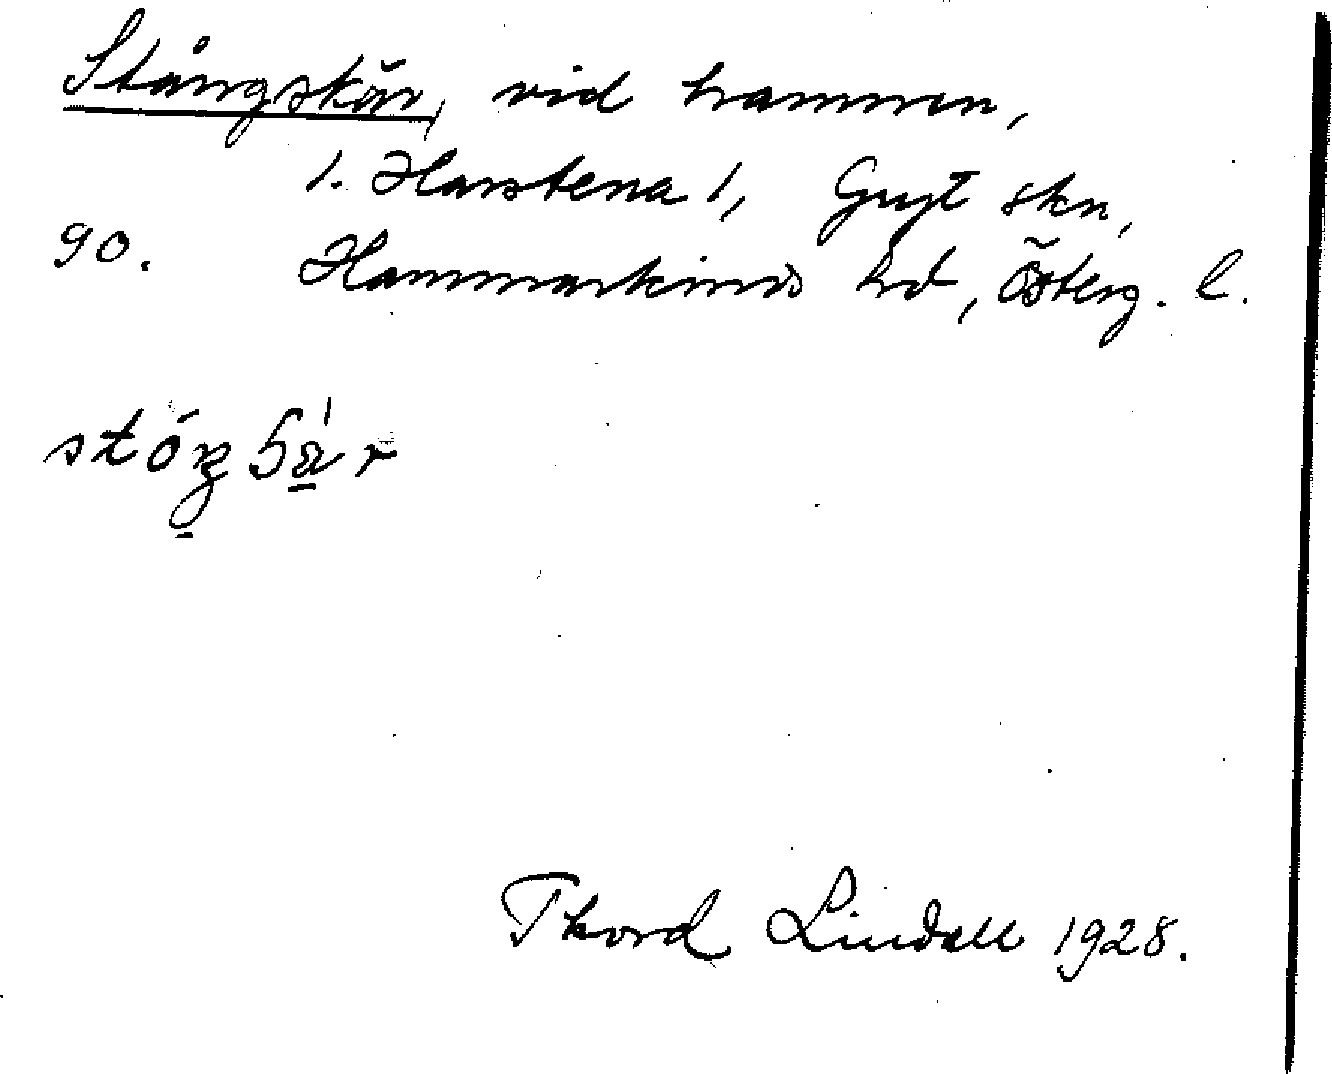 Stångskär, vid hamnen,
1. Harstena 1, Gryt skn,
90. Hammarkinds hd, Österg. l.
Thord Lindell 1928.